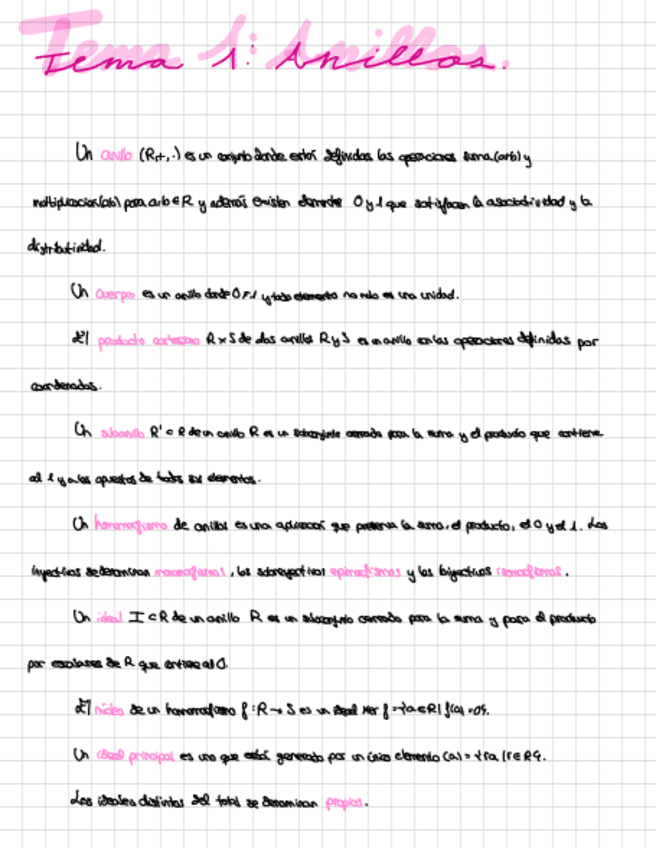 Tema 1: Anillos.
Un anillo (R,+,·) es un conjunto donde están definidas las operaciones suma (a+b) y
multiplicación (ab) para a,b∈R y además existen elementos 0 y 1 que satisfacen la asociatividad y la
distributividad.
Un cuerpo es un anillo donde 0≠1 y todo elemento no nulo es una unidad.
El producto cartesiano R×S de dos anillos R y S es un anillo con las operaciones definidas por
coordenadas.
Un subanillo R'⊂R de un anillo R es un subconjunto cerrado para la suma y el producto que contiene
al 1 y a los opuestos de todos sus elementos.
Un homomorfismo de anillos es una aplicación que preserva la suma, el producto, el 0 y el 1. Los
inyectivos se denominan monomorfismos, los sobreyectivos epimorfismos y los biyectivos isomorfismos.
Un ideal I⊂R de un anillo R es un subconjunto cerrado para la suma y para el producto
por escalares de R que contiene al 0.
El núcleo de un homomorfismo f:R→S es un ideal Ker f={a∈R|f(a)=0}.
Un ideal principal es uno que está generado por un único elemento (a)={ra|r∈R}.
Los ideales distintos del total se denominan propios.